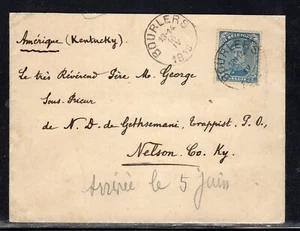 Amérique (Kentucky)
BOURLERS
BOURLERS
Le très Révérend Père M. George
Sous-Prieur
de N. D. de Gethsemani, Trappist P.O.,
Nelson. Co. Ky.
Arrivée le 5 Juin